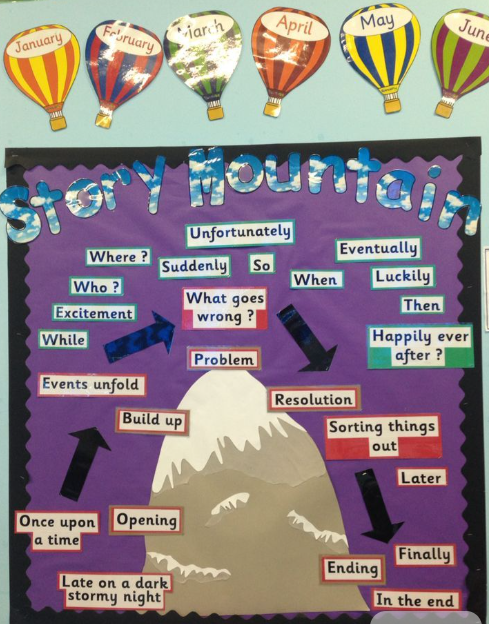 January
February
March
April
May
June
Story Mountain
Unfortunately
Where ?
Suddenly
So
Eventually
Who ?
When
Luckily
Excitement
What goes
wrong ?
Then
While
Happily ever
after ?
Problem
Events unfold
Resolution
Build up
Sorting things
out
Later
Once upon
a time
Opening
Finally
Ending
Late on a dark
stormy night
In the end